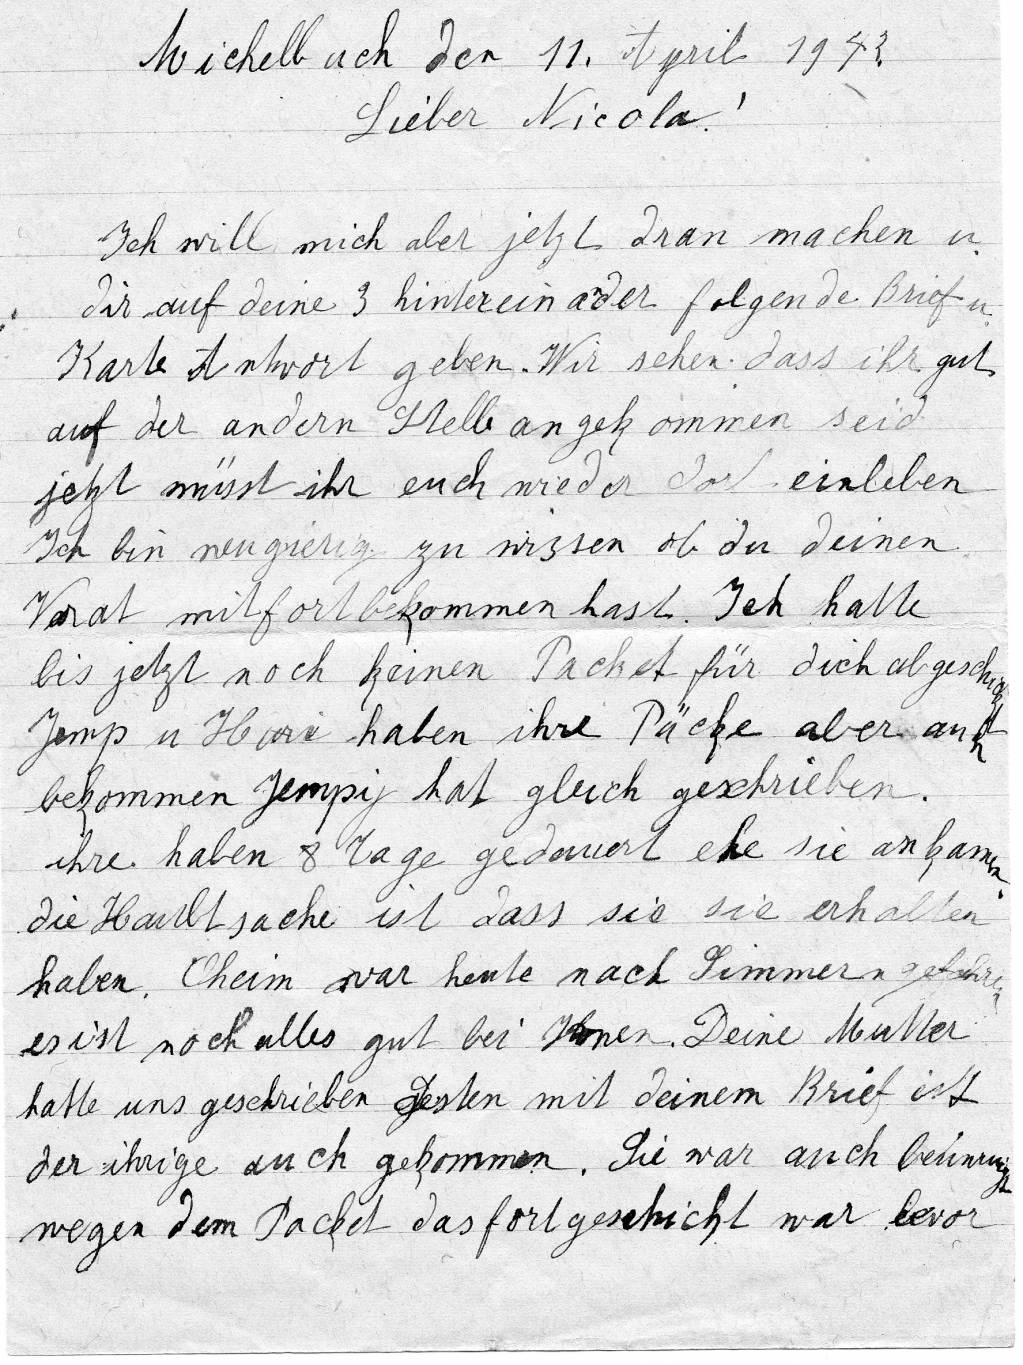 Michelbuch den 11. April 1943.
Lieber Nicola!
Ich will mich aber jetzt dran machen u.
dir auf deine 3 hintereinader folgende Brief u.
Karte Antwort geben. Wir sehen dass ihr gut
auf der andern Stelle angekommen seid
jetzt müsst ihr euch wieder dort einleben
Ich bin neugierig zu wissen ob du deinen
Vorat mitfortbekommen hast. Ich hatte
bis jetzt noch keinen Packet für dich abgeschickt
Jemp u haben ihre Päcke aber auch
bekommen Jempij hat gleich geschrieben.
ihre haben 8 Tage gedauert ehe sie ankamen.
die Haubtsache ist dass sie sie erhalten
haben. Oheim war heute nach Simmern gefahren
es ist noch alles gut bei Ihnen. Deine Mutter
hatte uns geschrieben Gesten mit deinem Brief ist
der ihrige auch gekommen. Sie war auch beunruigt
wegen dem Packet das fortgeschickt war bevor